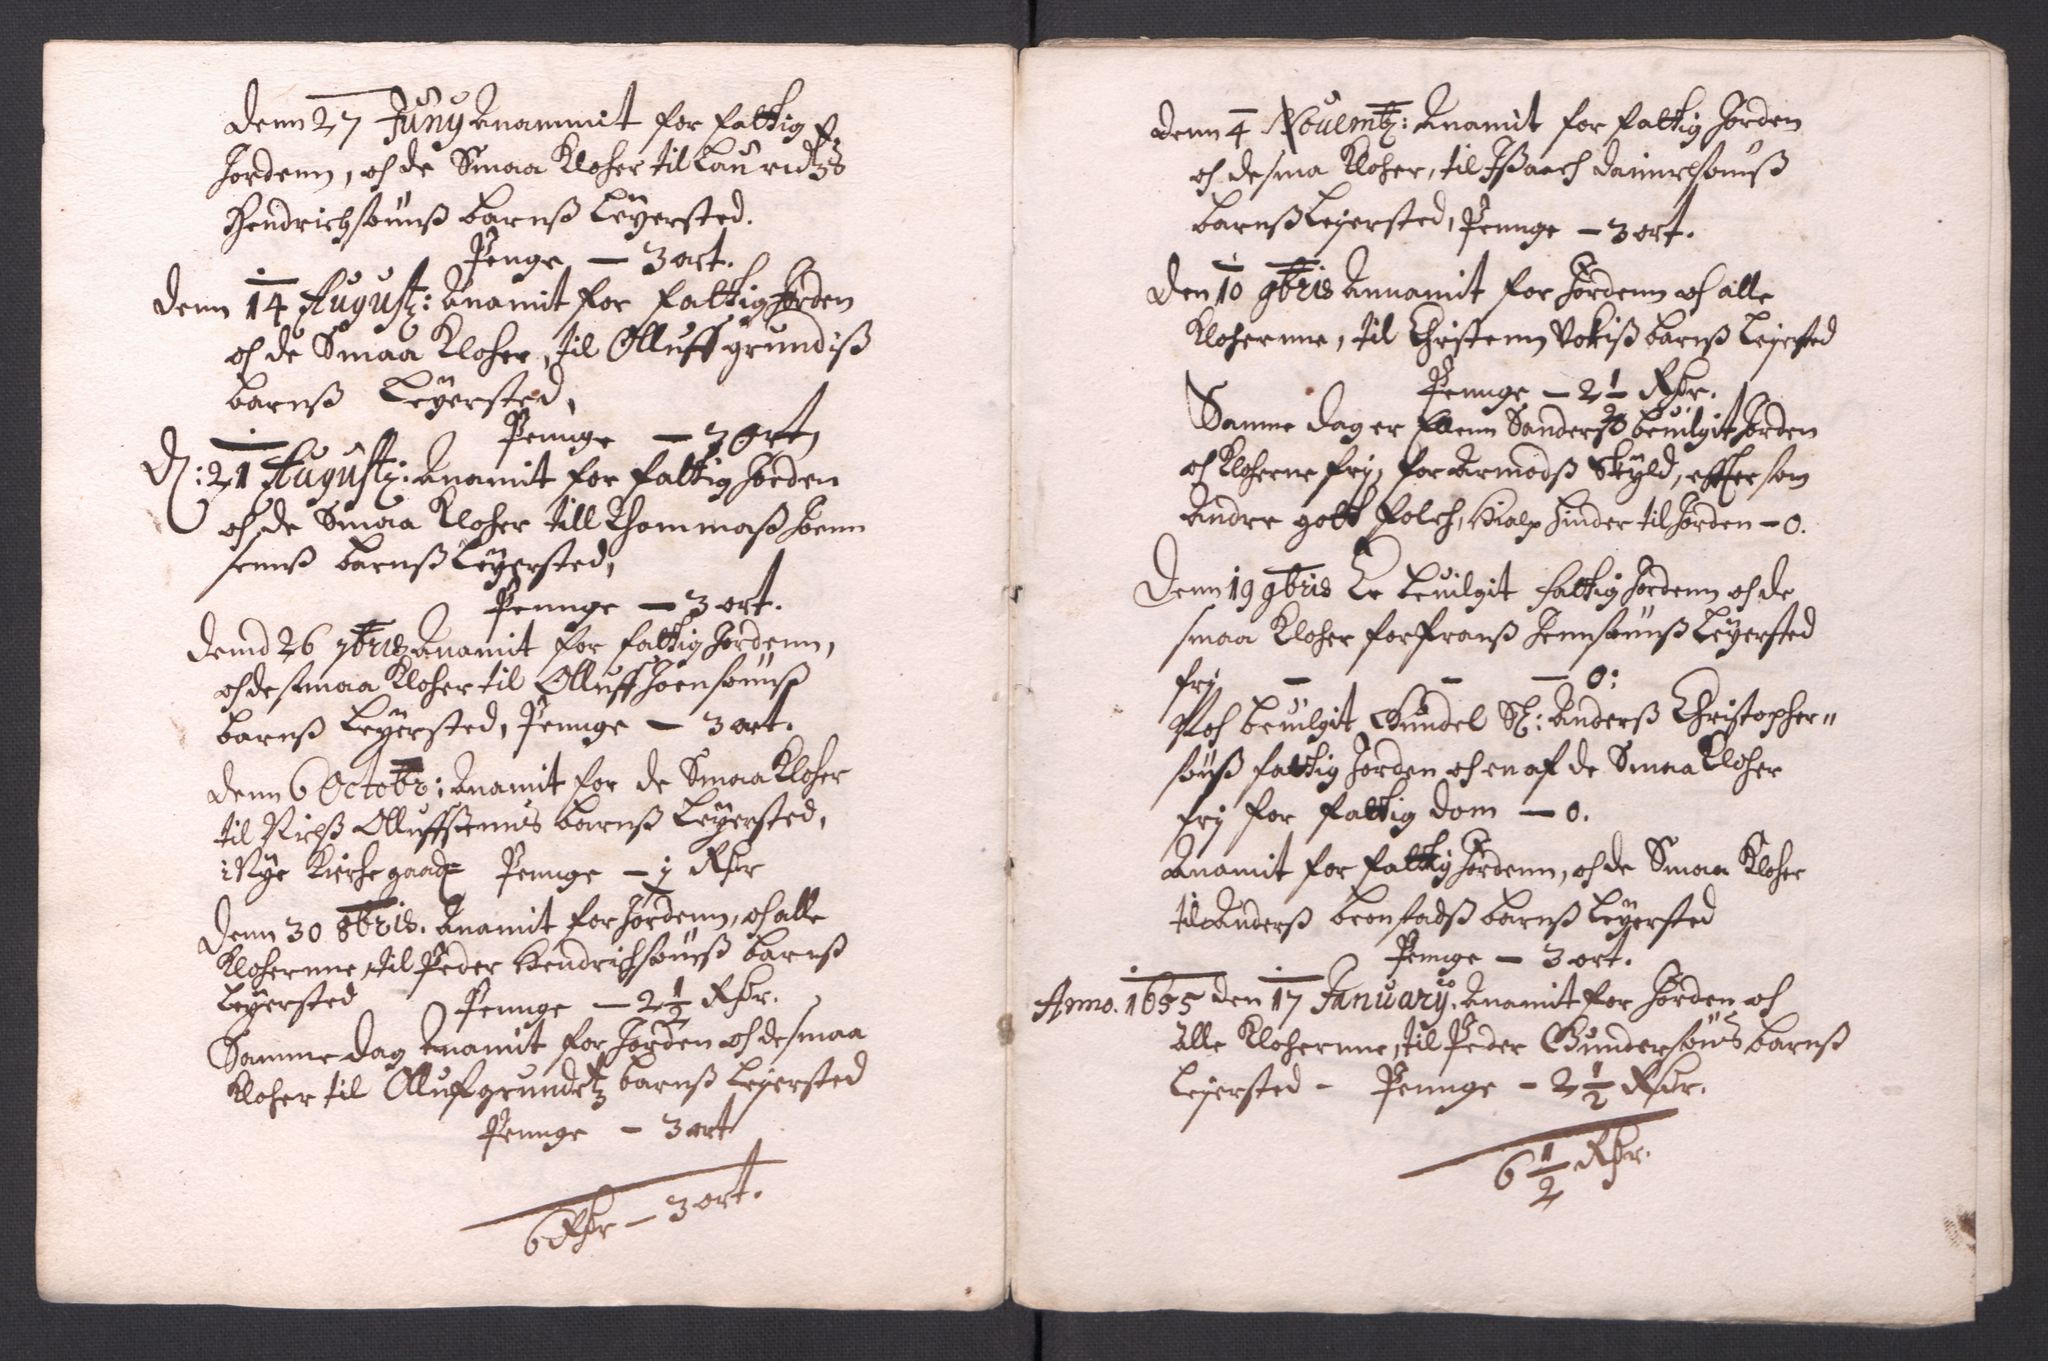 Denn 27 Juny Anammit for fattig
Jordenn, och de Smaa Klocher til Lauridtzs
Hendrichsøns barns Leyersted.
Penge – 3 ort.
Denn 14 August: Anamit for fattig Jorden
och de Smaa Klocher, til Olluff grundiß
barnß Leyersted,
Penge – 3 ort,
D: 21 August: Anamit for fattig Jorden
och de Smaa Klocher till Thommaß Joenn
sennß barnß Leyersted,
Penge – 3 ort.
Dennd 26 7bris Anamit for fattig Jordenn,
och de smaa Klocher til Olluff Joensønß
barnß Leyersted, Penge – 3 ort.
Denn 6 Octobr: Anamit for de Smaa Klocher
til Nielß Olluffsenns barnß Leyersted,
i Nye Kirche gaard Penge – j Rdr
Denn 30 8bris. Anamit for Jordenn, och alle
Klocherne, til Peder Hendrichsønß barnß
Leyersted Penge – 2 1/2 Rdr.
Samme Dag Anamit for Jorden och de smaa
Klocher til Olluf grundetz barnß Leyersted
Penge – 3 ort
6 Rdr – 3 ort.
Denn 4 Nouemb: Anamit for fattig Jorden
och de sma Klocher, til Ißaach Danielsønß
barnß Leyersted, Penge – 3 ort.
Den 10 9bris Annamit for Jordenn och alle
Klocherne, til Christenn barnß Leyersted
Penge – 2 1/2 Rdr.
Samme Dag er Ellenn Sanders beuilgit Jorden
och Klocherne fry, for Armodß Skyld, effter som
Andre gott folch, Hialp hinder til Jorden – 0.
Denn 19 9bris Er beuilgit fattig Jordenn och de
smaa Klocher for franß Jennsønß Leyersted
fry – – – 0:
Noch beuilgit Gundel Sl: Anderß Christopher=
sønß fattig Jorden och en af de Smaa Klocher
fry for fattig dom – 0.
Anamit for fattig Jordenn, och de Smaa Klocher
til Anderß barnß Leyersted
Penge – 3 ort.
Anno. 1655 den 17 January. Anamit for Jorden och
alle Klocherne, til Peder Gundersøns barnß
Leyersted – Penge – 2 1/2 Rdr.
6 1/2 Rdr.